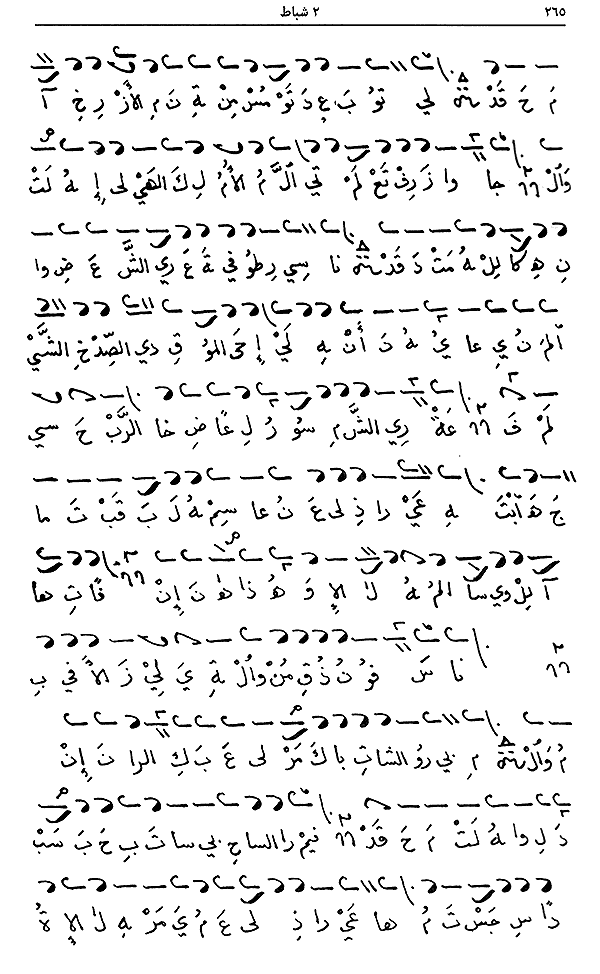 ٢٦٥ ٢ شباط
مَ حَ قَدْ لي تَوْ بَ عِ دَ تَوْ مُسْ مِنْ ةِ نَ مِ الأَزْ رِ خِ آ
وَالْ جا وا زَ رِفْ تَعْ لَمْ تي الَّ مُ الأُمْ لِ كَ الهَيْ لى إِ هُ لَتْ
نِ هِ كا لِلْ هُ مَتْ دَ قَدْ نا سي رِ طو في ةَ عَ ري الشَّ عَ ضِ وا
المَ نُ يِ عا يُ هُ نَ أَنْ هِ لَيْ إِ حى المو قِ دي الصِّدْ خِ الشَّيْ
لَمْ فَ عَةْ ري الشَّ مِ سو رُ لِ عًا ضِ خا الرَّبْ حَ سي
جَ هَ ابْتَ هِ غَيْ را ذِ لى عَ نُ عا سِمْ هُ لَ بَ قَبْ تَ ما
آ لِلْ دي سا المُ هُ لٰ الإِ وَ هُ ذا هٰ نَ إِنْ قًا تِ ها
نا سَ فو نُ ذُ قِ مُنْ وَالْ ةِ يَ لِيْ زَ الأَ في بِ
مُ وَالْ مِ بي رو الشا تِ با كَ مَرْ لى عَ بَ كِ الرا نَ إِنْ
دَ لِ وا هُ لَتْ مَ حَ قَدْ نيمْ را السا حِ بي سا تَ بِ حَ بَ سَبْ
ذا سِ جَسْ تَ مُ ها غَيْ را ذِ لى عَ مُ يَ مَرْ هِ لٰ الإِ ةُ